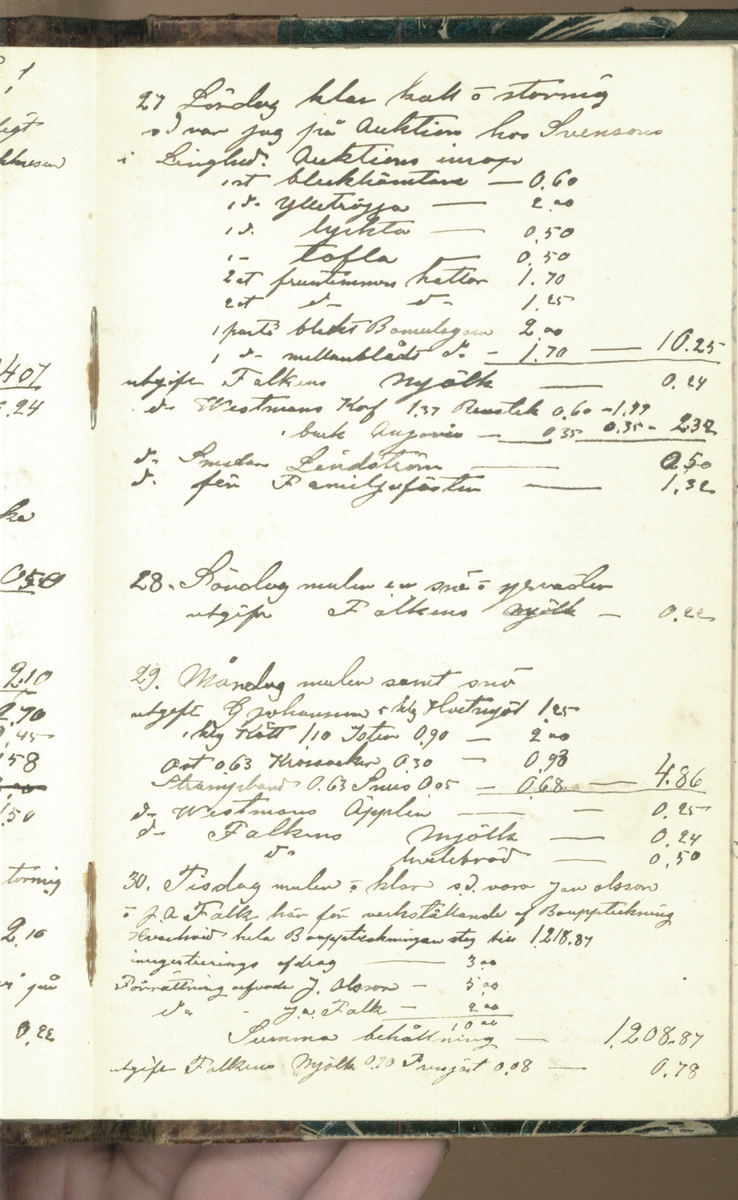 27 Lördag klar kall o stormig
s.d var jag på Auktion hos Svensons
i Auktions inrop
1 st bleckhämtare — 0.60
1 d- ylletröjja — 2.00
1 d. lyckta — 0.50
1 - tafla — 0.50
2 st fruntimmers hattar 1.70
2 st d- d- 1.25
1 parti blekt Bomulsgarn 2.00
1 d- mellanblått d- - 1.70 — 10.25
utgift Falkens mjölk — 0.24
d- Westmans Korf 1.37 0.60 - 1.97
1 burk Anjovis — 0.35 0.35 - 2.32
d- Smeden Lindström — 0.50
d. för — 1.32
28. Söndag mulen snö o yrväder
utgift Falkens mjölk — 0.22
29. Måndag mulen samt snö
utgift G Johansson 5 klg Hvetmjöl 1.25
1 klg Kött 1.10 0.90 — 2.00
Ost 0.63 Krossocker 0.30 — 0.93
Strumpband 0.63 Snus 0.05 — 0.68 — 4.86
d- Westmans Äpplen — 0.25
d- Falkens Mjölk — 0.24
d- hvetebröd — 0.50
30. Tisdag mulen o klar s.d. vara Jan Olsson
o J.A Falk här för verkställande af Bouppteckning
Hvarvid hela Bouppteckningen steg till 1,218.87
inregistrerings afdrag — 3.00
Förrättning arfvode J. Olsson — 5.00
d- - J.A. Falk — 2.00
10.00
Summa behållning — 1,208.87
utgift Falkens Mjölk 0.70 Pressjäst 0.08 — 0.78
407
0.24
050
210
2.70
0.45
58
1.50
tormig
2.10
på
0.22